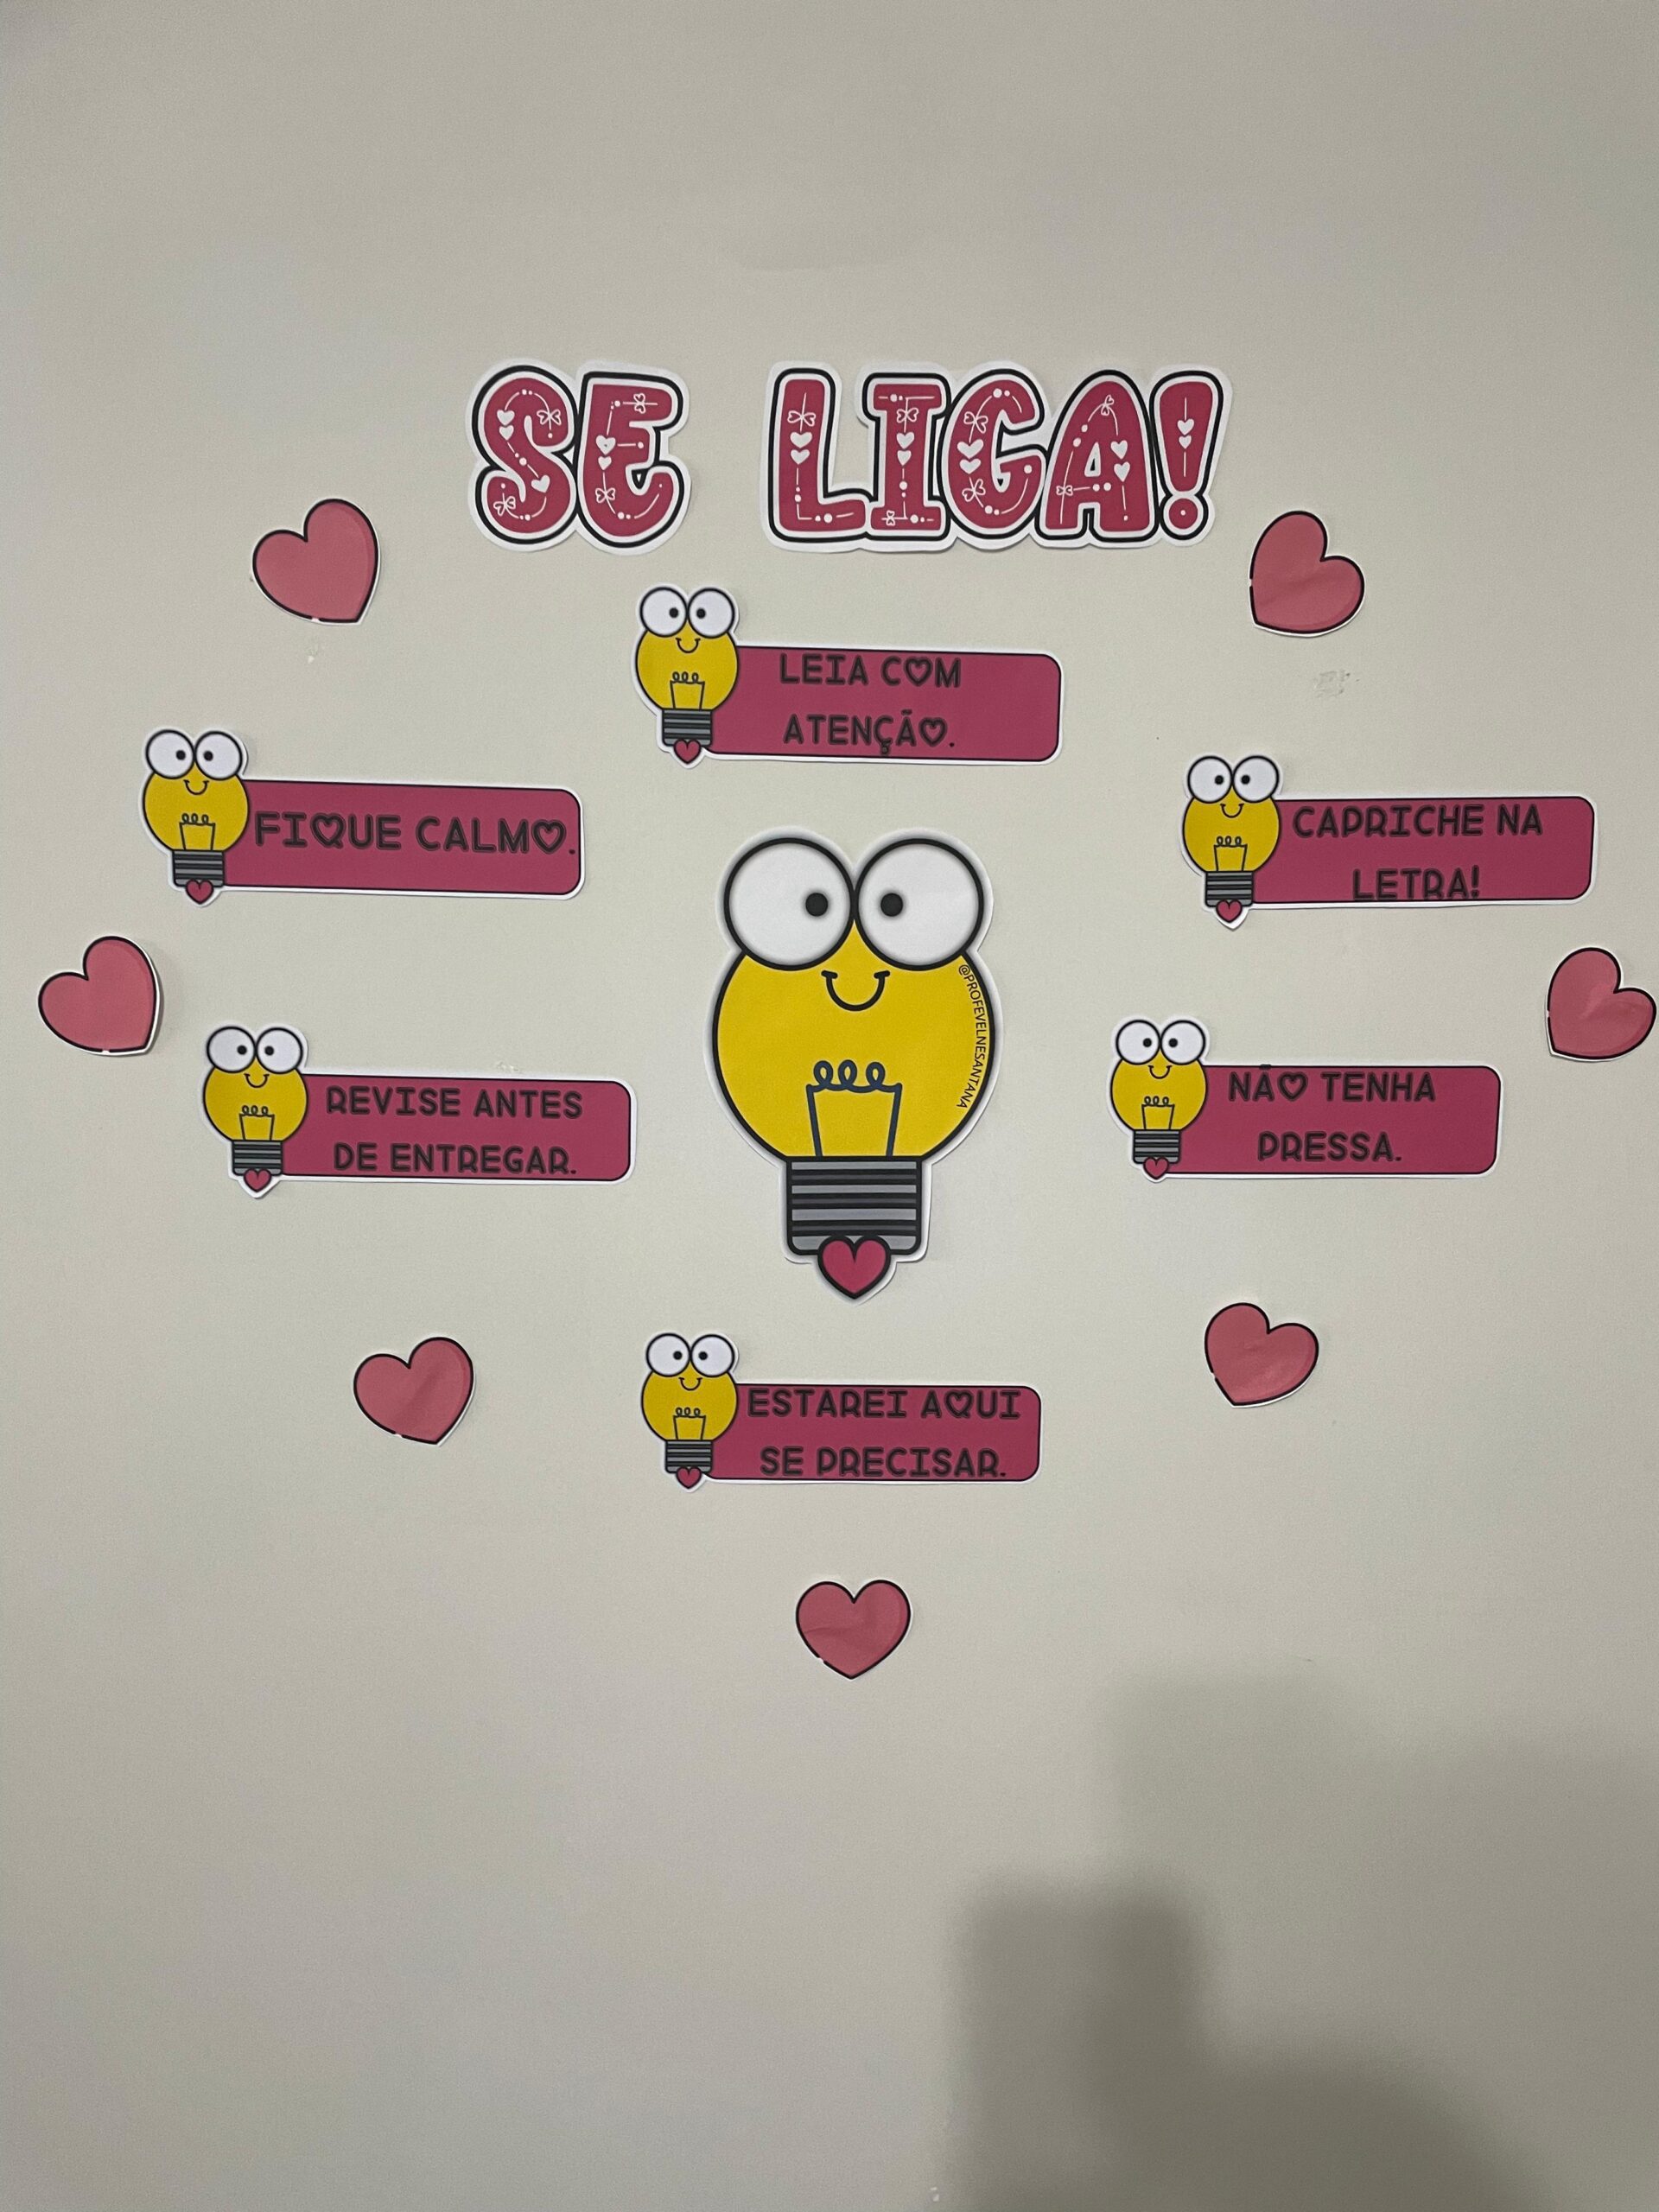 SE LIGA!
LEIA COM
ATENÇÃO.
FIQUE CALMO.
CAPRICHE NA
LETRA!
@PROFEVELNESANTANA
REVISE ANTES
DE ENTREGAR.
NÃO TENHA
PRESSA.
ESTAREI AQUI
SE PRECISAR.